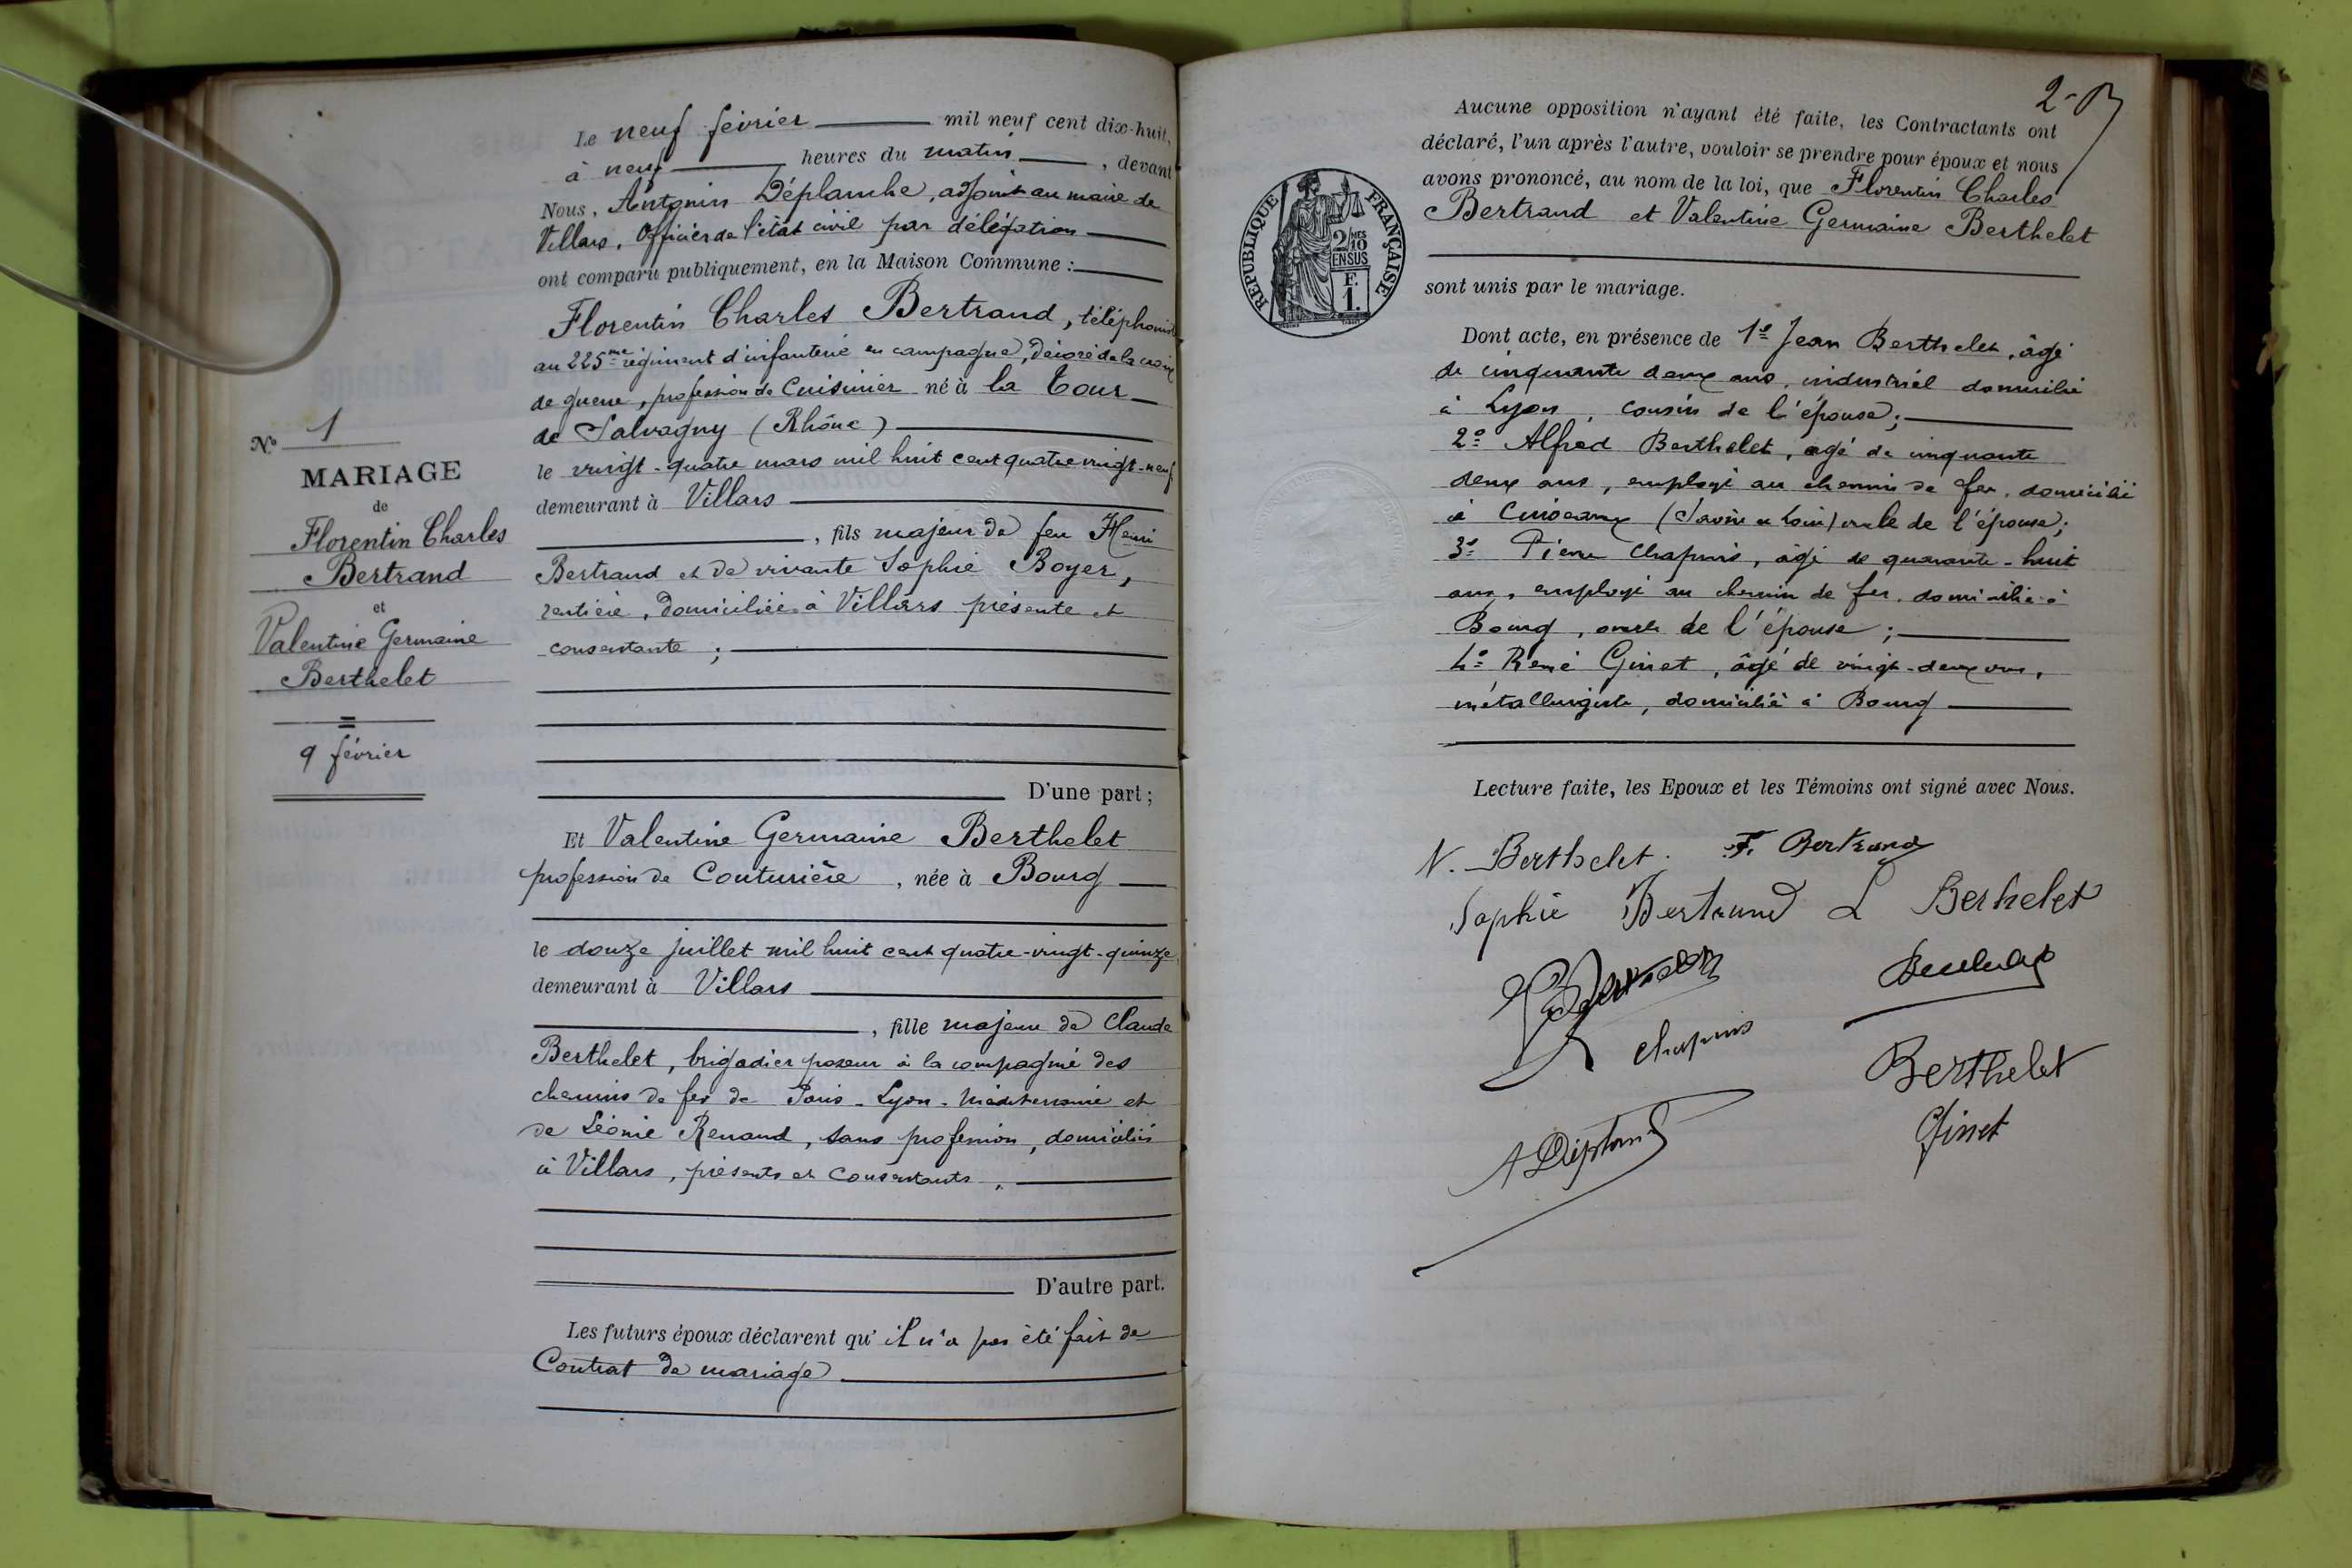 Le neuf février mil neuf cent dix-huit,
à neuf heures du matin, devant
Nous, Antonin Déplanche, adjoint au maire de
Villars, Officier de l'état civil par délégation
ont comparu publiquement, en la Maison Commune :
Florentin Charles Bertrand, téléphoniste
au 225me régiment d'infanterie en campagne, décoré de la croix
de guerre, profession de Cuisinier né à la Tour
de Salvagny (Rhône)
le vingt-quatre mars mil huit cent quatre vingt-neuf
demeurant à Villars
, fils majeur de feu Henri
Bertrand et de vivante Sophie Boyer,
rentière, domiciliée à Villars présente et
consentante ;
D'une part ;
Et Valentine Germaine Berthelet
profession de Couturière, née à Bourg
le douze juillet mil huit cent quatre-vingt-quinze,
demeurant à Villars
, fille majeure de Claude
Berthelet, brigadier poseur à la compagnie des
chemins de fer de Paris-Lyon-Méditerranée et
de Léonie Renaud, sans profession, domiciliés
à Villars, présents et consentants,
D'autre part.
Les futurs époux déclarent qu'il n'a pas été fait de
Contrat de mariage
No 1
MARIAGE
de
Florentin Charles
Bertrand
et
Valentine Germaine
Berthelet
9 février
2
Aucune opposition n'ayant été faite, les Contractants ont
déclaré, l'un après l'autre, vouloir se prendre pour époux et nous
avons prononcé, au nom de la loi, que Florentin Charles
Bertrand et Valentine Germaine Berthelet
sont unis par le mariage.
RÉPUBLIQUE FRANÇAISE
2/10MES
EN SUS
F.
1.
Dont acte, en présence de 1º Jean Berthelet, âgé
de cinquante deux ans, industriel domicilié
à Lyon, cousin de l'épouse ;
2º Alfred Berthelet, âgé de cinquante
deux ans, employé au chemin de fer, domicilié
à Cuiseaux (Saône et Loire) oncle de l'épouse ;
3º Pierre Chapuis, âgé de quarante-huit
ans, employé au chemin de fer, domicilié à
Bourg, oncle de l'épouse ;
4º René Ginet, âgé de vingt-deux ans,
métallurgiste, domicilié à Bourg
Lecture faite, les Epoux et les Témoins ont signé avec Nous.
V. Berthelet. F. Bertrand
Sophie Bertrand L Berthelet
Chapuis
Berthelet
Ginet
A Déplanche